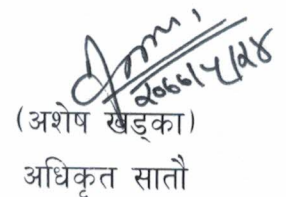 २०७७/५/२४
(अशेष खड्का)
अधिकृत सातौ